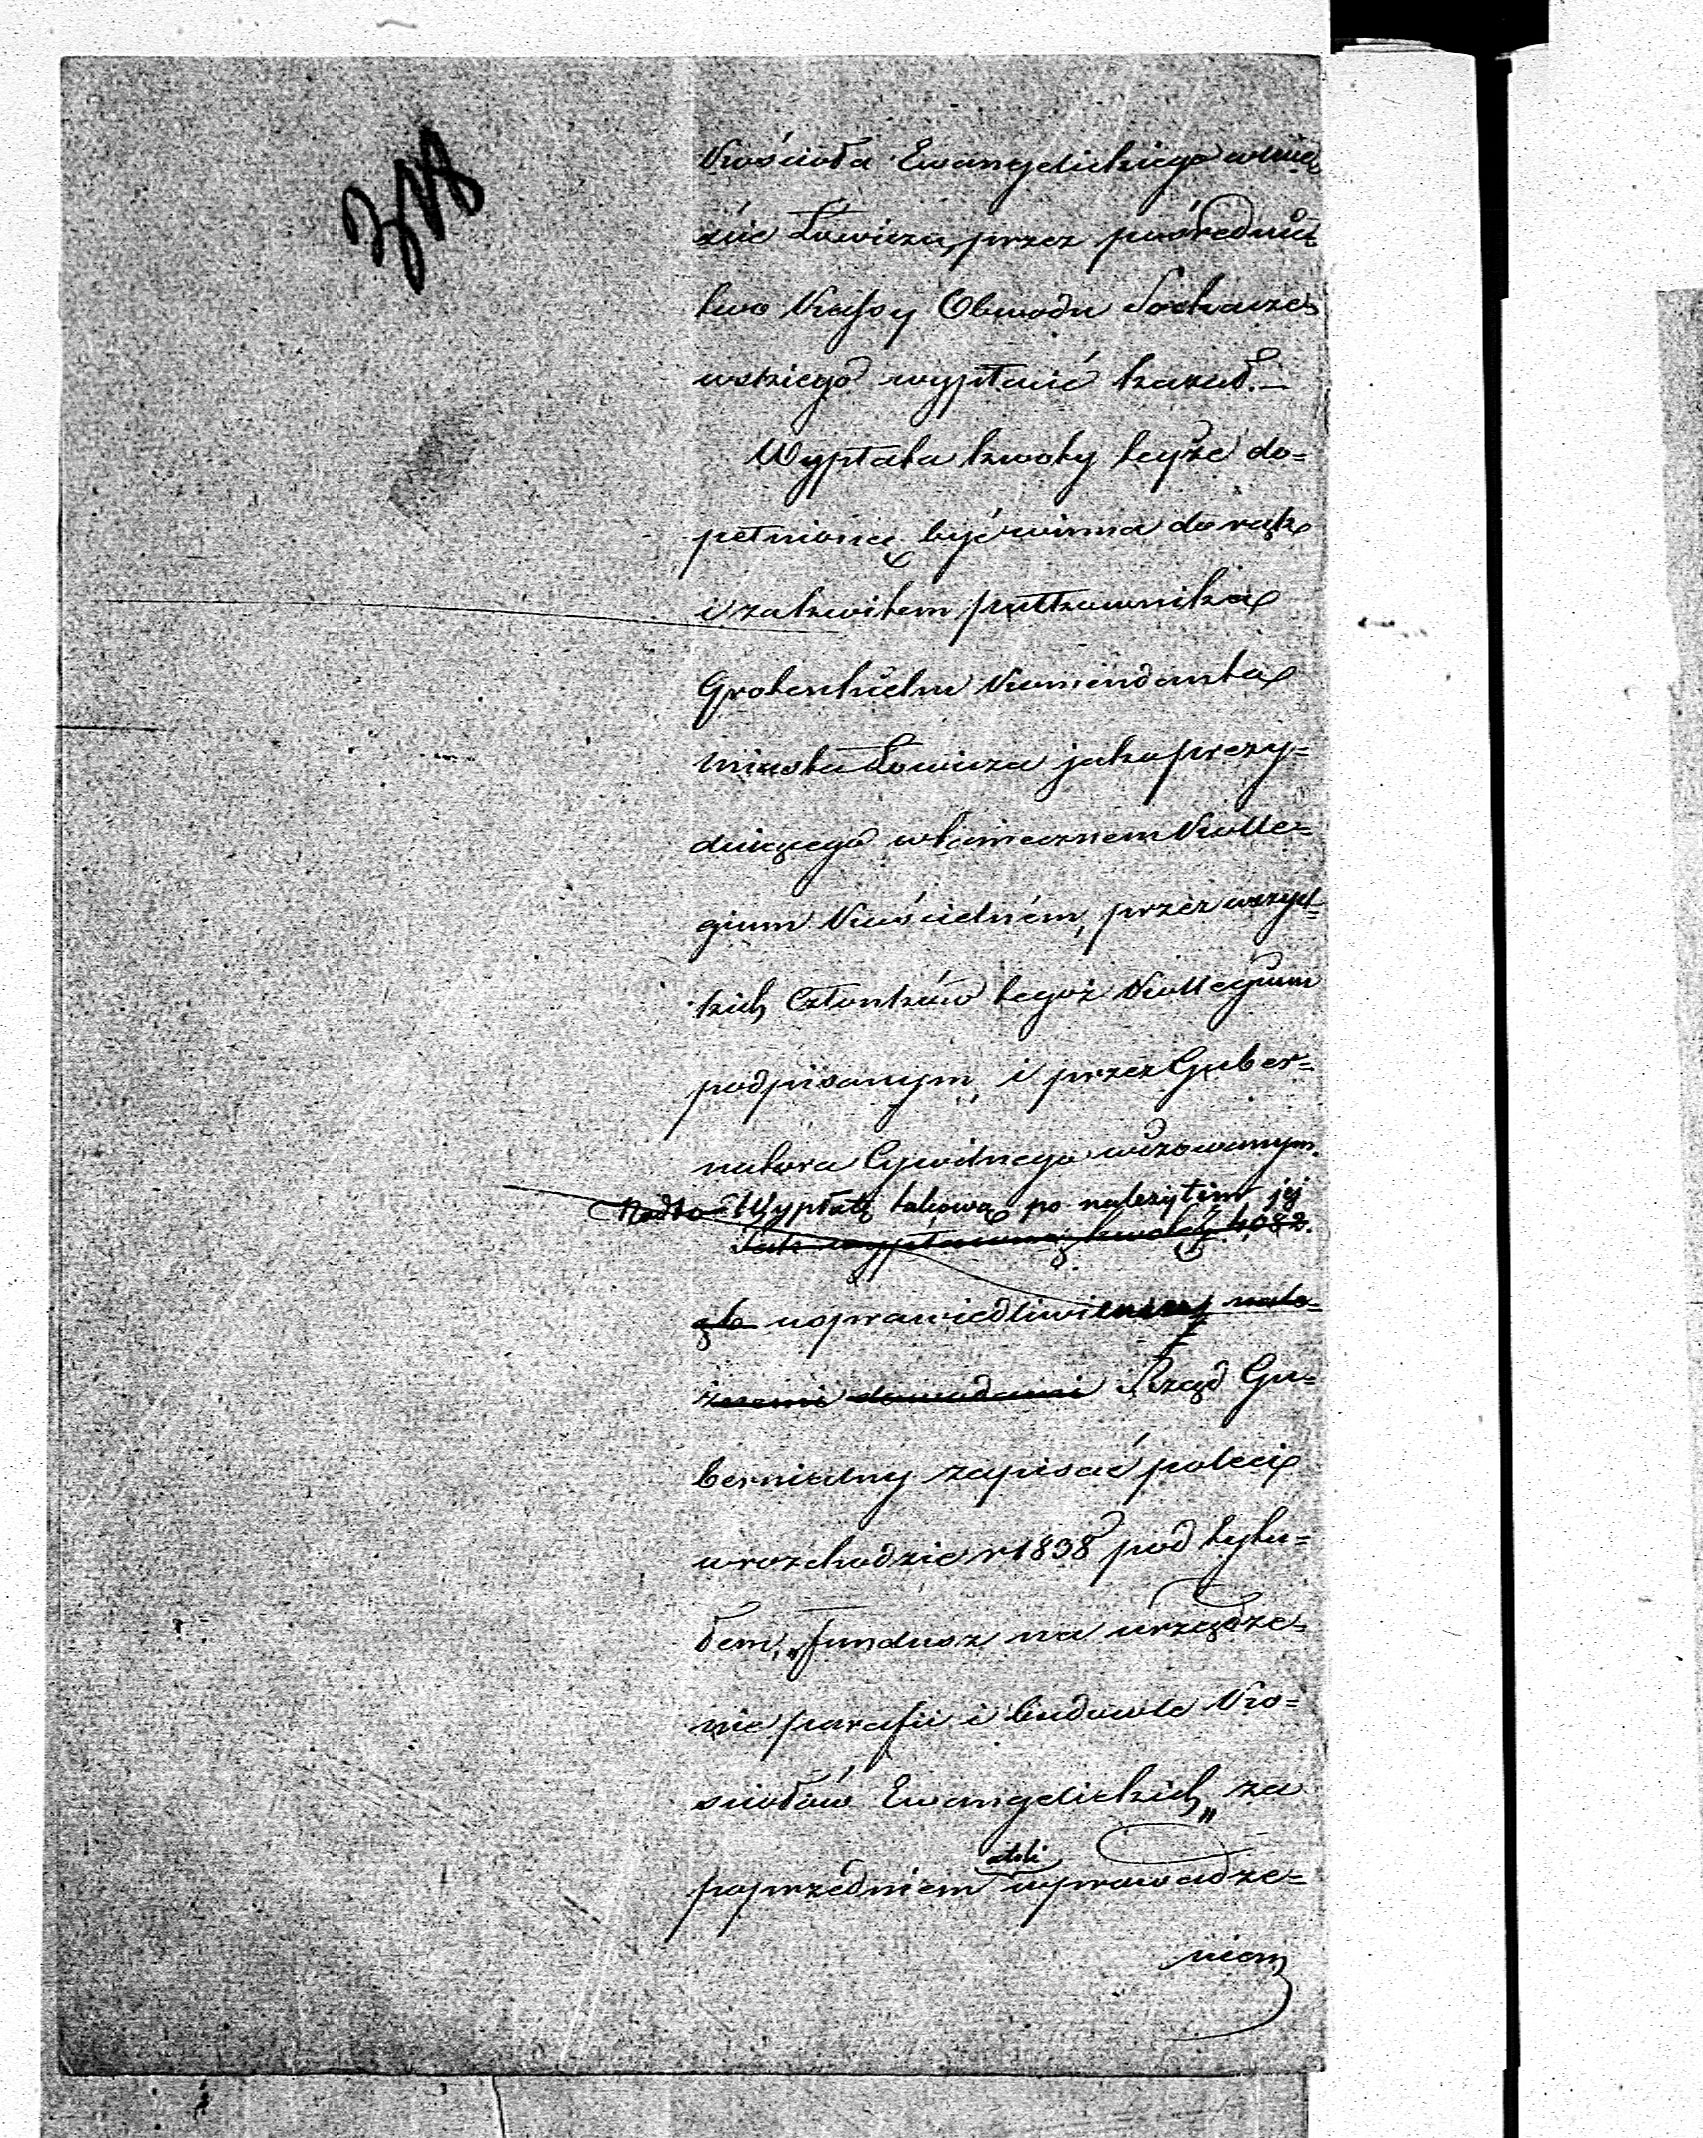 Kościoła Ewangelickiego w mie
ście Łowiczu, przez pośrednict
two Kassy Obwodu Sochacze
wskiego wypłacić kazał. —
Wypłata kwoty teyże do=
pełnioną być winna do rąk
i za kwitem pułkownika
Grotenhielm Komendanta
miasta Łowicza jako prezy=
duiącego w tamecznem Kolle=
gium Kościelném, przez wszyst=
kich Członków tegoż Kollegium
podpisanym, i przez Guber=
natora Cywilnego wizowanym.
Nadto Wypłatę takową po należytém jej
Tak wypłaconą kwotę 4082.
zło usprawiedliwieniu nale=
żnemi dowodami Rząd Gu=
bernialny zapisać poleci
w rozchodzie r 1838 pod tytu=
łem, „fundusz na urządze=
nie parafii i budowle Ko=
sciołów Ewangelickich„ za
poprzedniem wprowadze=
niem